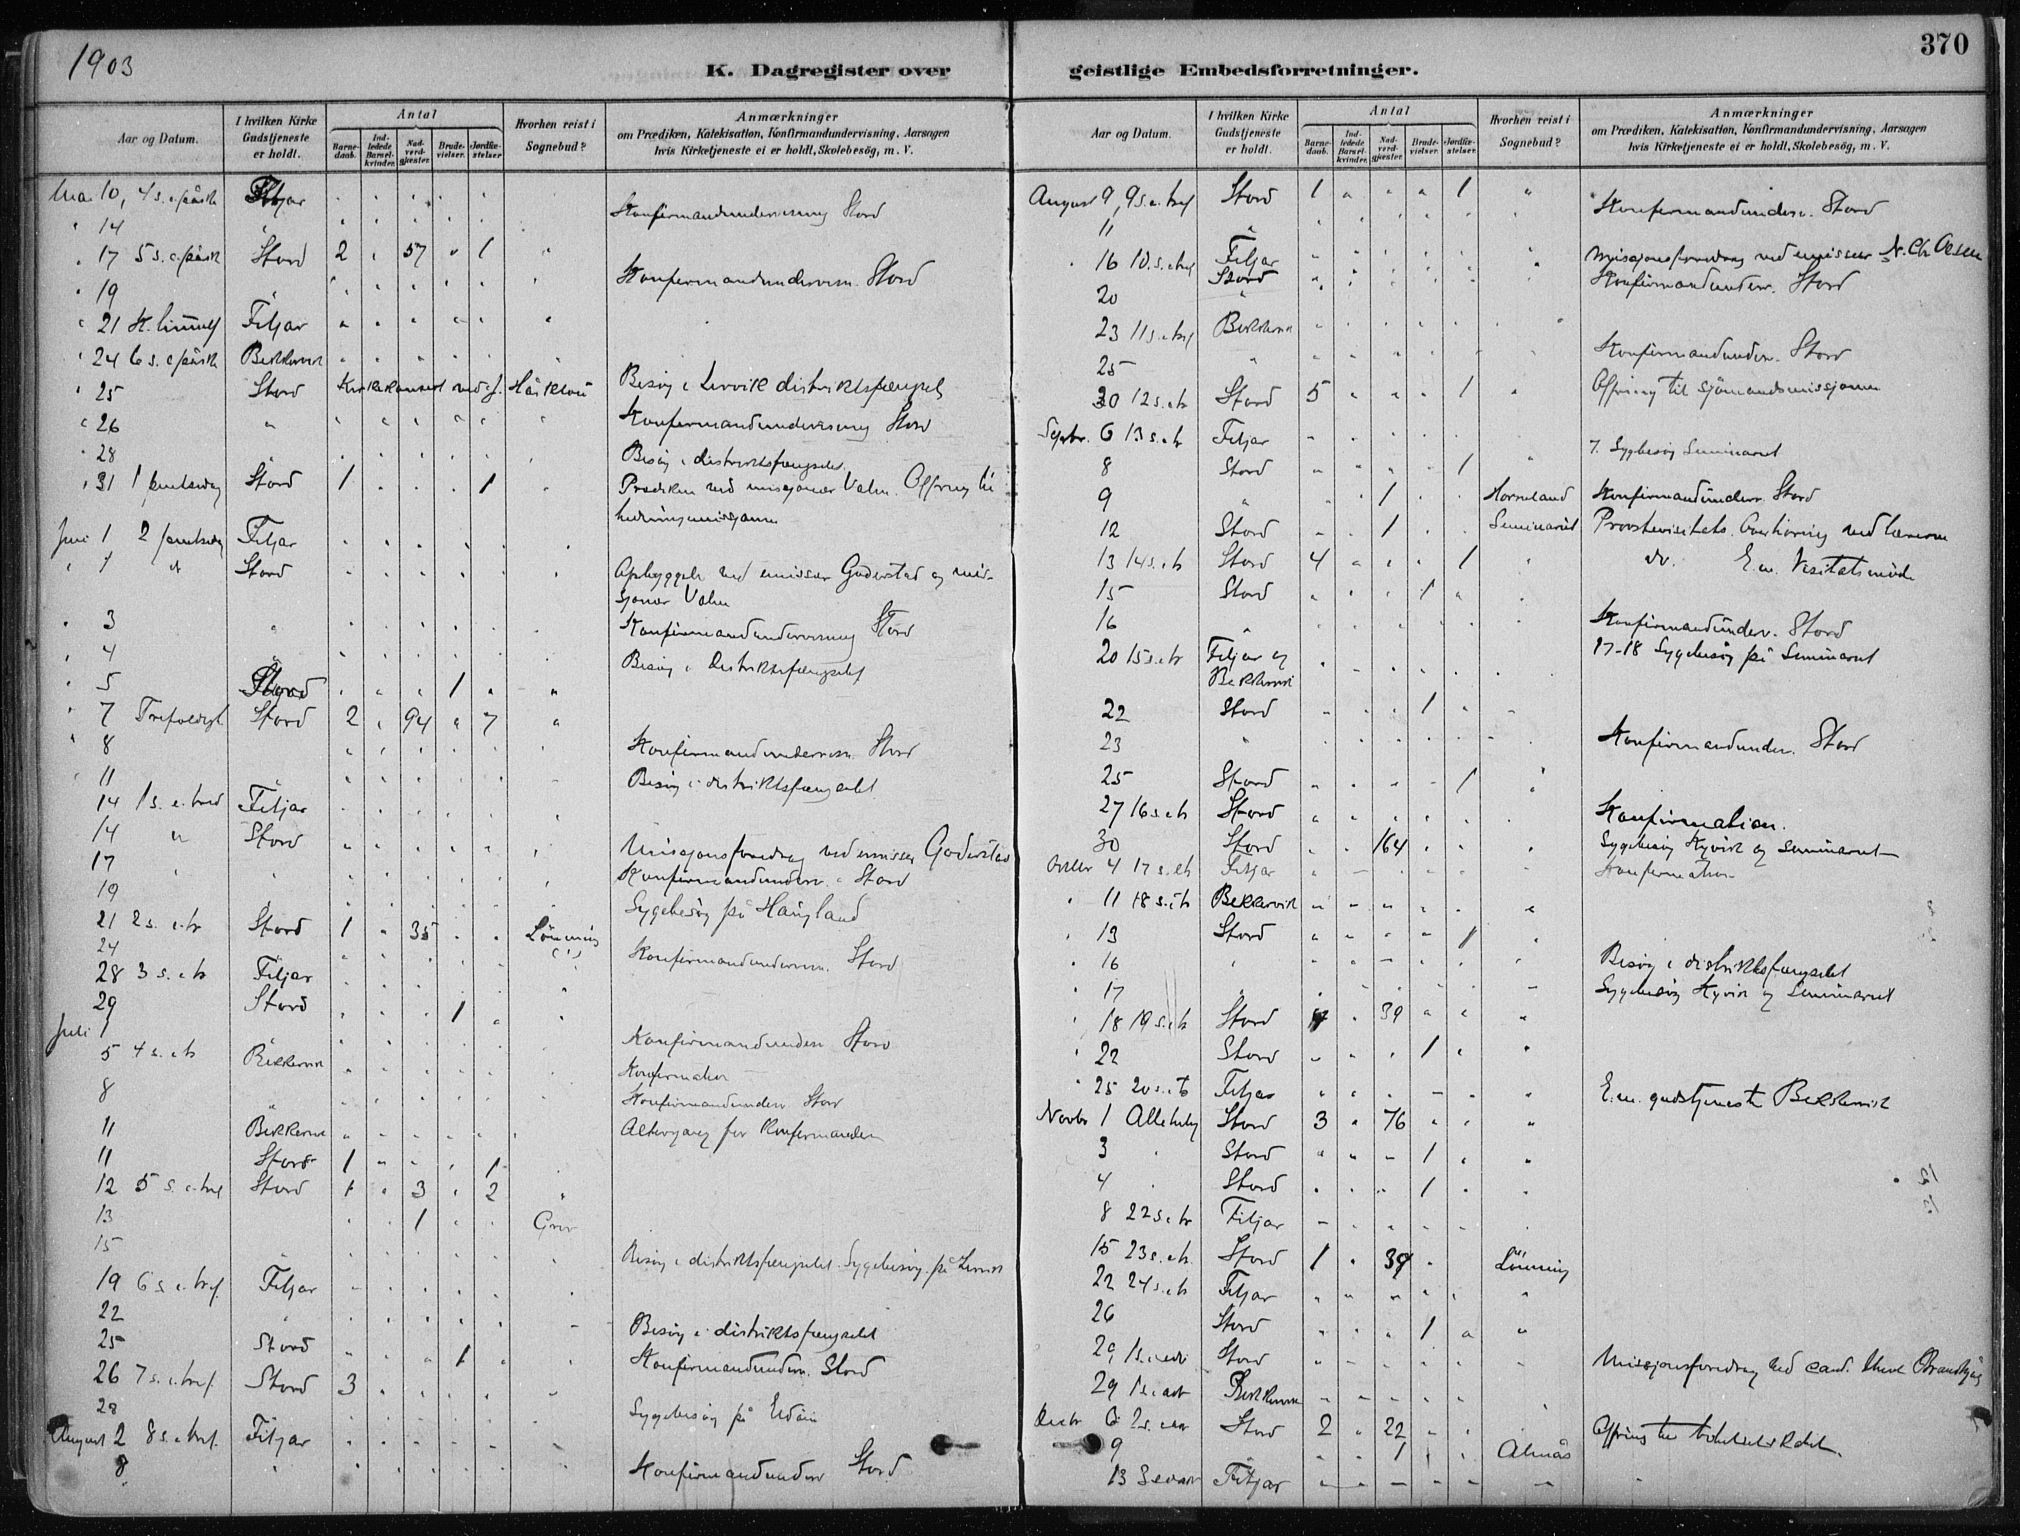 1903
370
K. Dagregister over geistlige Embedsforretninger.
Aar og Datum. I hvilken Kirke Gudstjeneste er holdt. Antal Barnedaab. Indledede Barselkvinder. Nadverdgjester Brudevielser. Jordfæstelser Hvorhen reist i Sognebud? Anmærkninger om Prædiken, Katekisation, Konfirmandundervisning, Aarsagen hvis Kirketjeneste ei er holdt, Skolebesög, m. V.
Mai 10, 4 s. e. påsk Fitjar
" 14 " Konfirmandundervisning Stord
" 17 5 s. e. påsk Stord 2 " 57 " 1 "
" 19 Konfirmandundervisn. Stord
" 21 Kr. himmelf Fitjar
" 24 6 s. e påsk Bekkervik
" 25 Stord Kirkekonsert ved Besøg i Lervik distriktsfængsel
" 26 " Konfirmandundervisning Stord
" 28 Besøg i distriktsfængselet
" 31 1 pintsedag Stord 1 1 Prediken ved misjonær Valen. Offring til
hedningemissjonen
Juni 1 2 pintsedag Fitjar
" 1 " Stord Opbyggelse ved emissær Guderstad og mis-
sjonær Valen
" 3 " Konfirmandundervisning Stord
" 4 " Besøg i distriktsfængselet
" 5 Stord 1
" 7 Trefoldigh Stord 2 " 94 " 7 "
" 8 Konfirmandundervisn. Stord
" 11 Besøg i distriktsfængselet
14 1 s. e. tref Fitjar
14 " Stord Missjonsforedrag ved emissær Guderstad
17 Konfirmandunderv. Stord
19 Sygebesøg på Haugland
21 2 s. e. tr Stord 1 " 35 Lönning (1)
24 Konfirmandundervisn. Stord
28 3 s. e tr Fitjar
29 Stord 1
Juli 1 Konfirmandunderv Stord
5 4 s. e tr Bekkervik Konfirmation
8 " Konfirmandunderv Stord
11 Bekkervik Altergang for konfirmanden
11 Stord 1 1
12 5 s. e. tref Stord 1 " 3 " 2
13 1
15 " Besøg i distriktsfængselet. Sygebesøg på Lervik
19 6 s. e. tref. Fitjar
22 " Besøg i distriktsfængselet
25 Stord 1 Konfirmandunderv. Stord
26 7 s. e. tref. Stord 3
28 Sygebesøg på Eldøen
August 2 8 s. e tref. Fitjar
8 " Konfirmandunderv Stord
Aar og Datum. I hvilken Kirke Gudstjeneste er holdt. Antal Barnedaab. Indledede Barselkvinder. Nadverdgjester. Brudevielser. Jordfæstelser. Hvorhen reist i Sognebud? Anmærkninger om Prædiken, Katekisation, Konfirmandundervisning, Aarsagen hvis Kirketjeneste ei er holdt, Skolebesög, m. V.
August 9, 9 s. e. tref Stord 1 " " " 1 "
11 " Konfirmandunderv. Stord
16 10. s. e tref Fitjar Missjonsforedrag ved emissær N. Chr Olsen
20 Stord Konfirmandunderv. Stord
23 11 s. e tref Bekkervik
25 " Konfirmandunderv. Stord
30 12 s. e. tr Stord 5 " " " 1 " Offring til sjömandsmissjonen
Septbr. 6 13 s. e. tr Fitjar
8 Stord 1 7. Sygebesøg Seminaret
9 " 1 Horneland Konfirmandunderv. Stord
12 Stord 1 Seminariet Provstevisitats. Overhöring ved lærerne
13 14 s. e. tr Stord 4 1 do. E.m. Visitatsmöde
15 Stord 1
16 " Konfirmandunderv. Stord
20 15 s. e tr Fitjar og 17-18 Sygebesøg på Seminaret
Bekkervik
22 Stord 1
23 " Konfirmandunder. Stord
25 Stord 1
27 16 s. e tr Stord Konfirmation.
30 Stord 164 Sygebesøg Kyvik og Seminaret
Oktbr 4 17 s. e tr Fitjar Konfirmation
" 11 18 s. e tr Bekkervik
" 13 Stord 1
" 16 " Besøg i distriktsfængselet
" 17 " Sygebesøg Kyvik og Seminaret
" 18 19 s. e. tr Stord " 39
" 22 Stord 1
" 25 20 s. e. tr Fitjar E.m. gudstjeneste Bekkervik
Novbr 1 Allehelg Stord 3 " 76
3 Stord 1
4 Stord 1
8 22 s. e. tr Fitjar
15 23 s. e. tr. Stord 1 " 39 Lönning
22 24 s. e. tr Fitjar
26 Stord 1
29, 1 s. i adv Stord Missjonsforedrag ved cand. theol
29 1 s. i adv Bekkervik
Decbr 6 2 s. i adv Stord 2 " 22
9 1 Almås
13 3 s i adv Fitjar